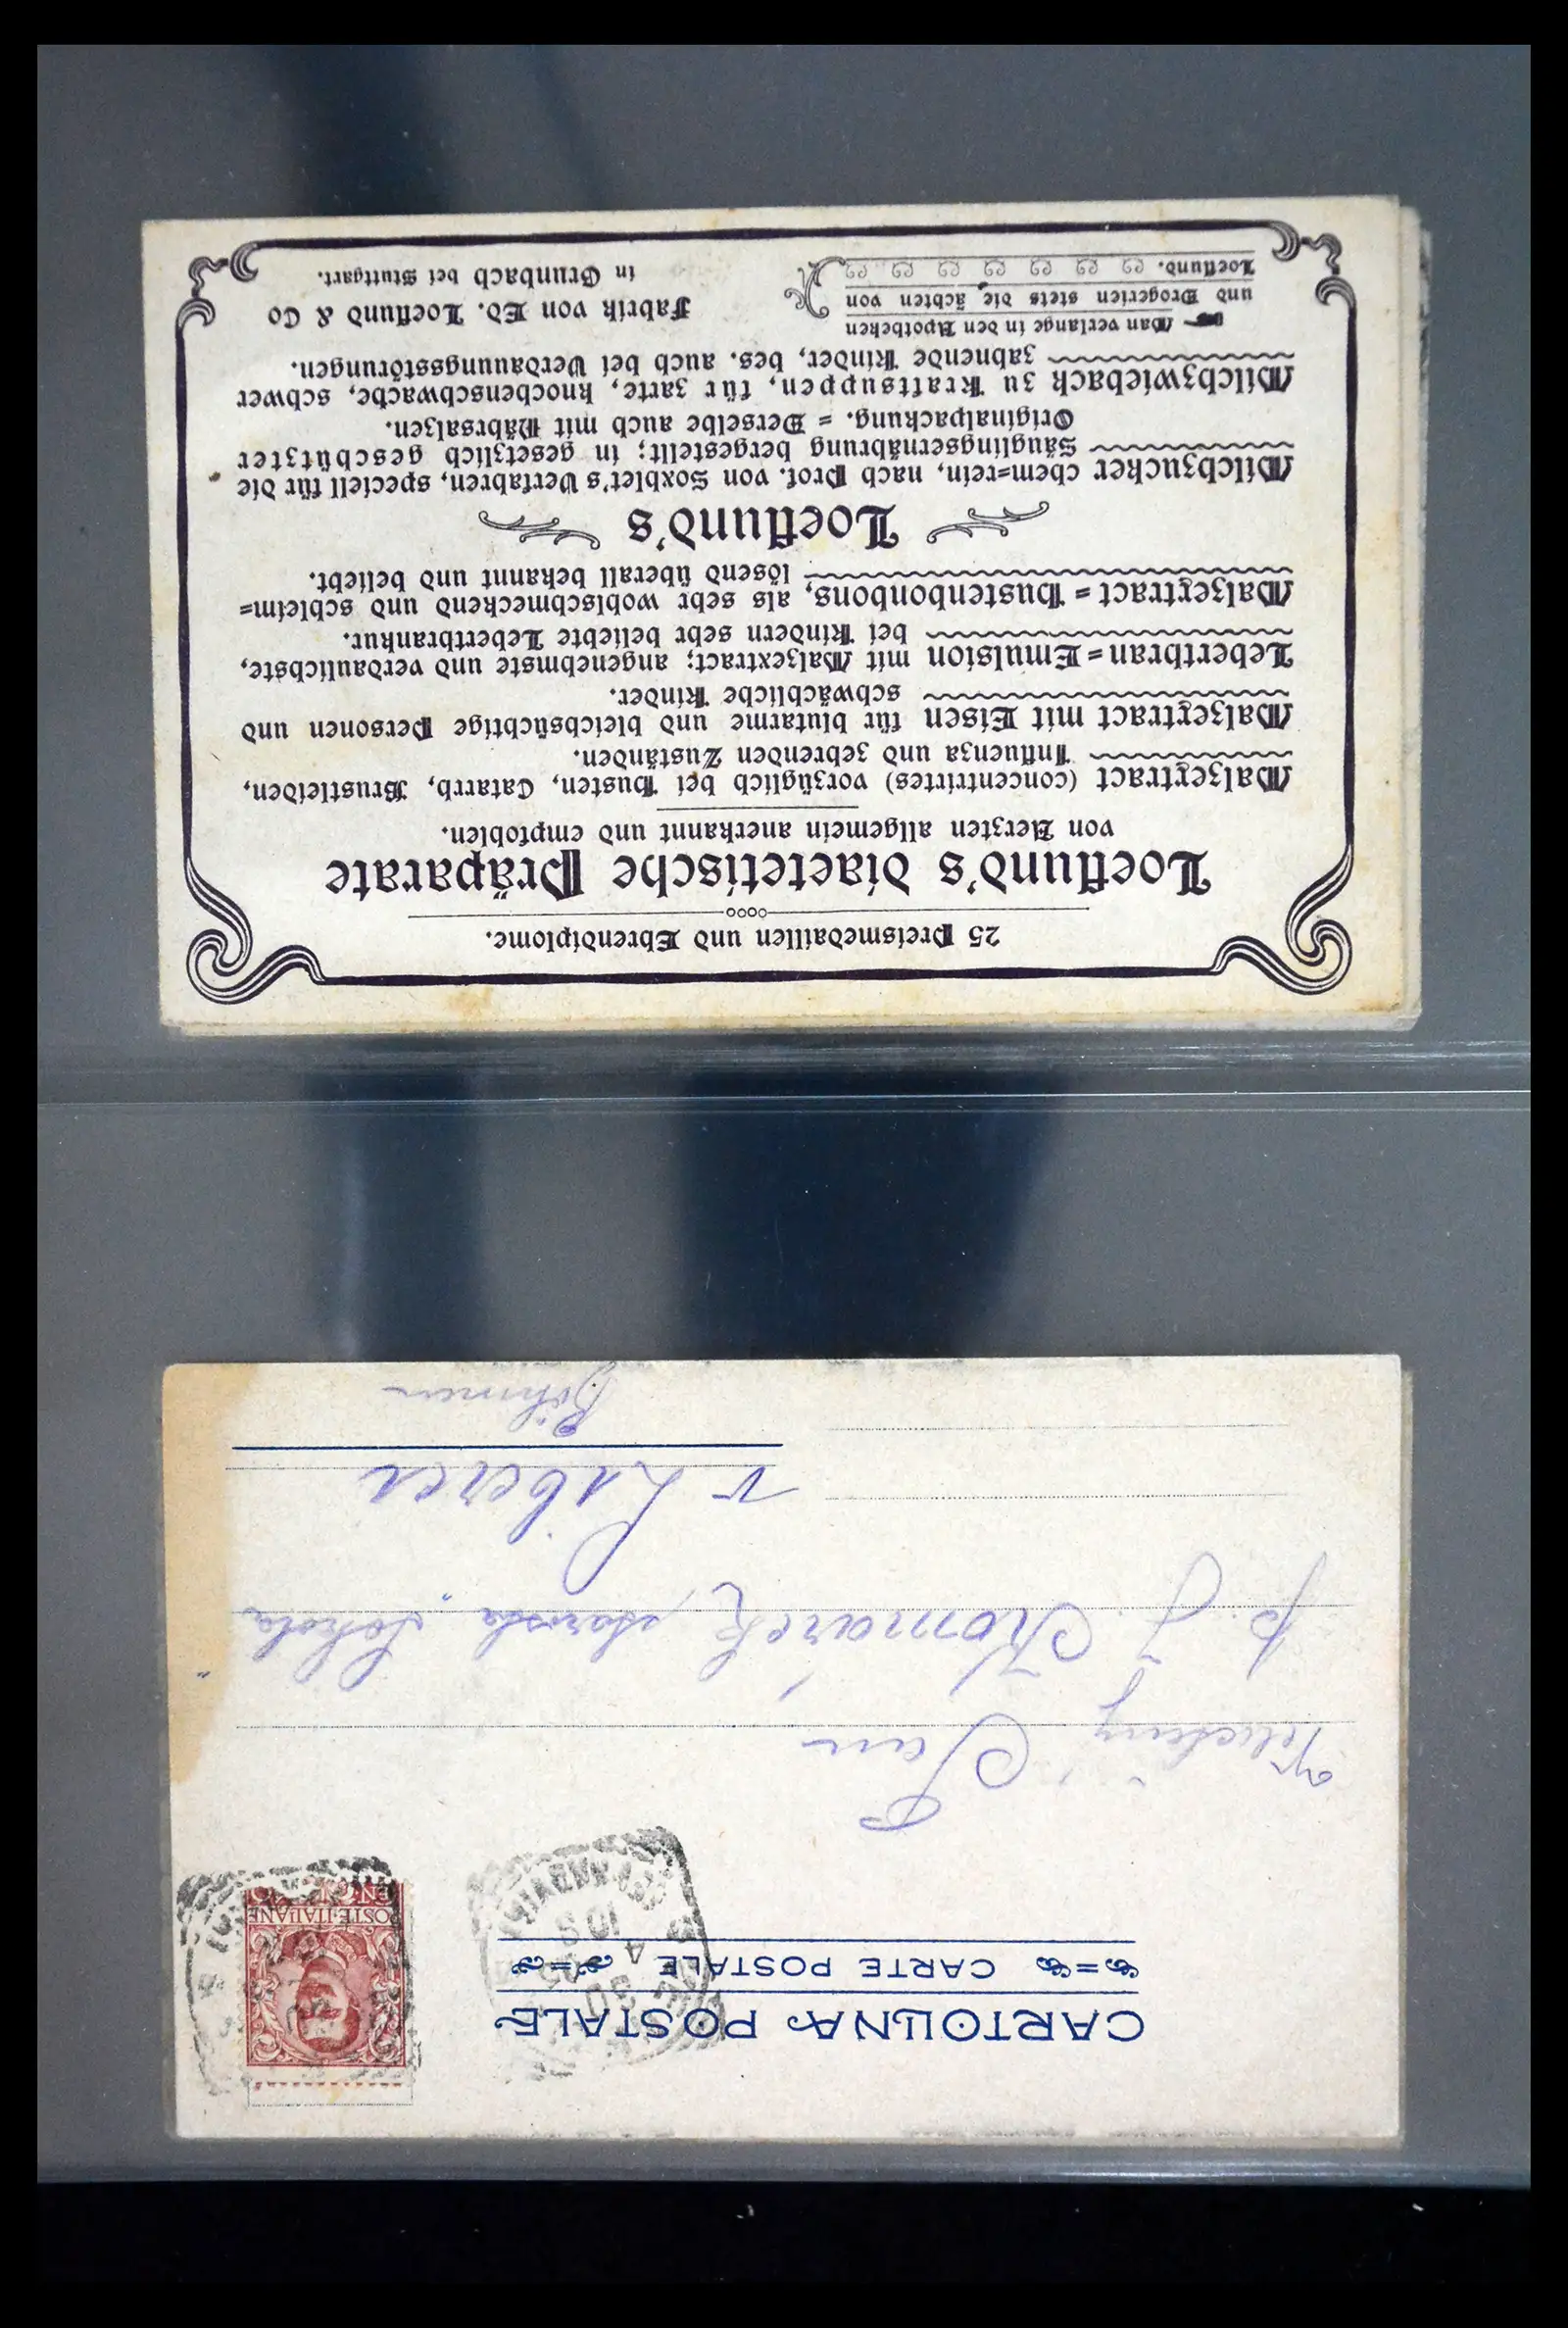 25 Preismedaillen und Ehrendiplome.
Loeflund's diaetetische Präparate
von Aerzten allgemein anerkannt und empfohlen.
Malzextract (concentrirtes) vorzüglich bei Husten, Catarrh, Brustleiden,
Influenza und zehrenden Zuständen.
Malzextract mit Eisen für blutarme und bleichsüchtige Personen und
schwächliche Kinder.
Leberthran=Emulsion mit Malzextract; angenehmste und verdaulichste,
bei Kindern sehr beliebte Leberthrankur.
Malzextract=Hustenbonbons, als sehr wohlschmeckend und schleim=
lösend überall bekannt und beliebt.
Loeflund's
Milchzucker chem=rein, nach Prof. von Soxhlet's Verfahren, speciell für die
Säuglingsernährung hergestellt; in gesetzlich geschützter
Originalpackung. = Derselbe auch mit Nährsalzen.
Milchzwieback zu Kraftsuppen, für zarte, knochenschwache, schwer
zahnende Kinder, bes. auch bei Verdauungsstörungen.
Man verlange in den Apotheken
und Drogerien stets die ächten von
Loeflund.
Fabrik von Ed. Loeflund & Co
in Grunbach bei Stuttgart.
CARTOLINA POSTALE
CARTE POSTALE
30 4 05
10 S
POSTE·ITALIANE
CEN. 10
Pan
p. J. Komárek, starosta „Sokola"
v Liberci
Böhmen